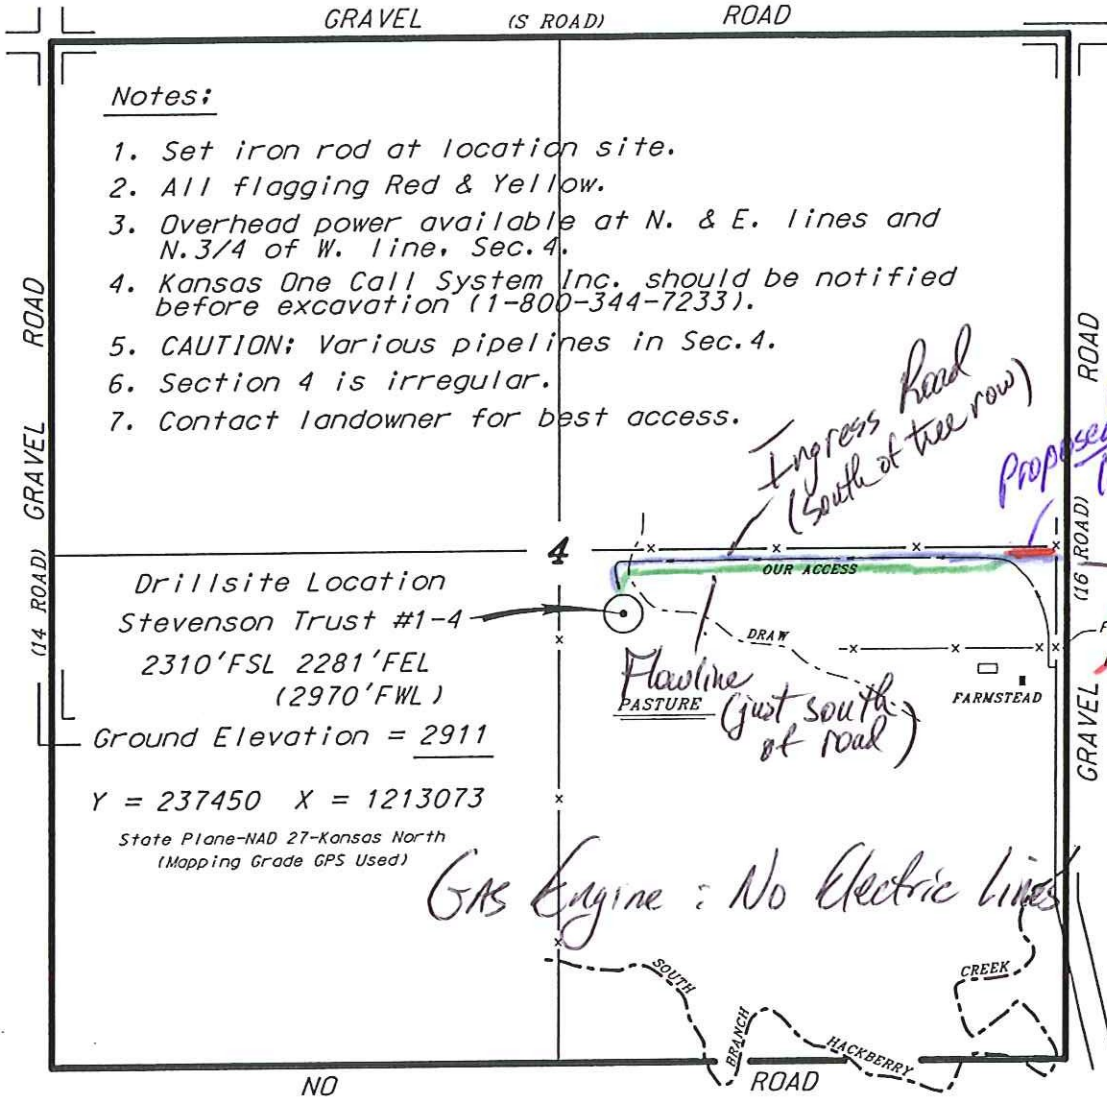 GRAVEL (S ROAD) ROAD
Notes:
1. Set iron rod at location site.
2. All flagging Red & Yellow.
3. Overhead power available at N. & E. lines and
N.3/4 of W. line, Sec.4.
4. Kansas One Call System Inc. should be notified
before excavation (1-800-344-7233).
5. CAUTION: Various pipelines in Sec.4.
6. Section 4 is irregular.
7. Contact landowner for best access.
(14 ROAD) GRAVEL ROAD
Ingress Road
(south of tree row)
Proposed
ROAD
(16 ROAD)
GRAVEL
4
OUR ACCESS
Drillsite Location
Stevenson Trust #1-4
2310'FSL 2281'FEL
(2970'FWL)
Ground Elevation = 2911
Y = 237450 X = 1213073
State Plane-NAD 27-Kansas North
(Mapping Grade GPS Used)
DRAW
Flowline
(just south
of road)
PASTURE
FARMSTEAD
F
GAS Engine : No Electric Lines
SOUTH
BRANCH
HACKBERRY
CREEK
NO ROAD